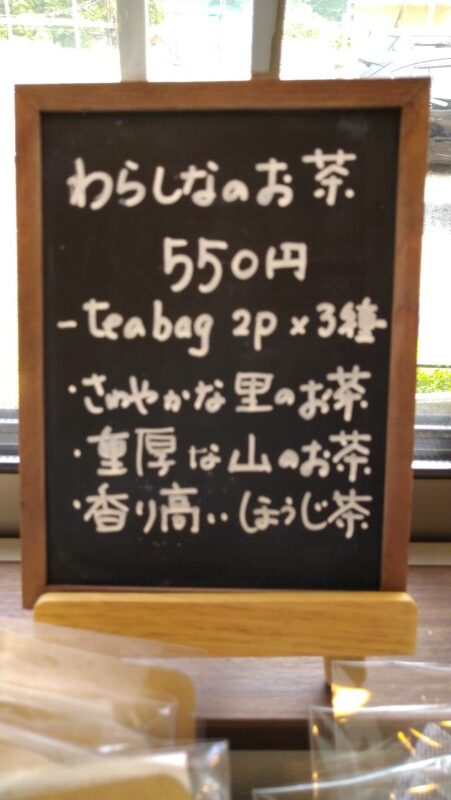 わらしなのお茶
550円
-tea bag 2p×3種-
・さわやかな里のお茶
・重厚な山のお茶
・香り高いほうじ茶